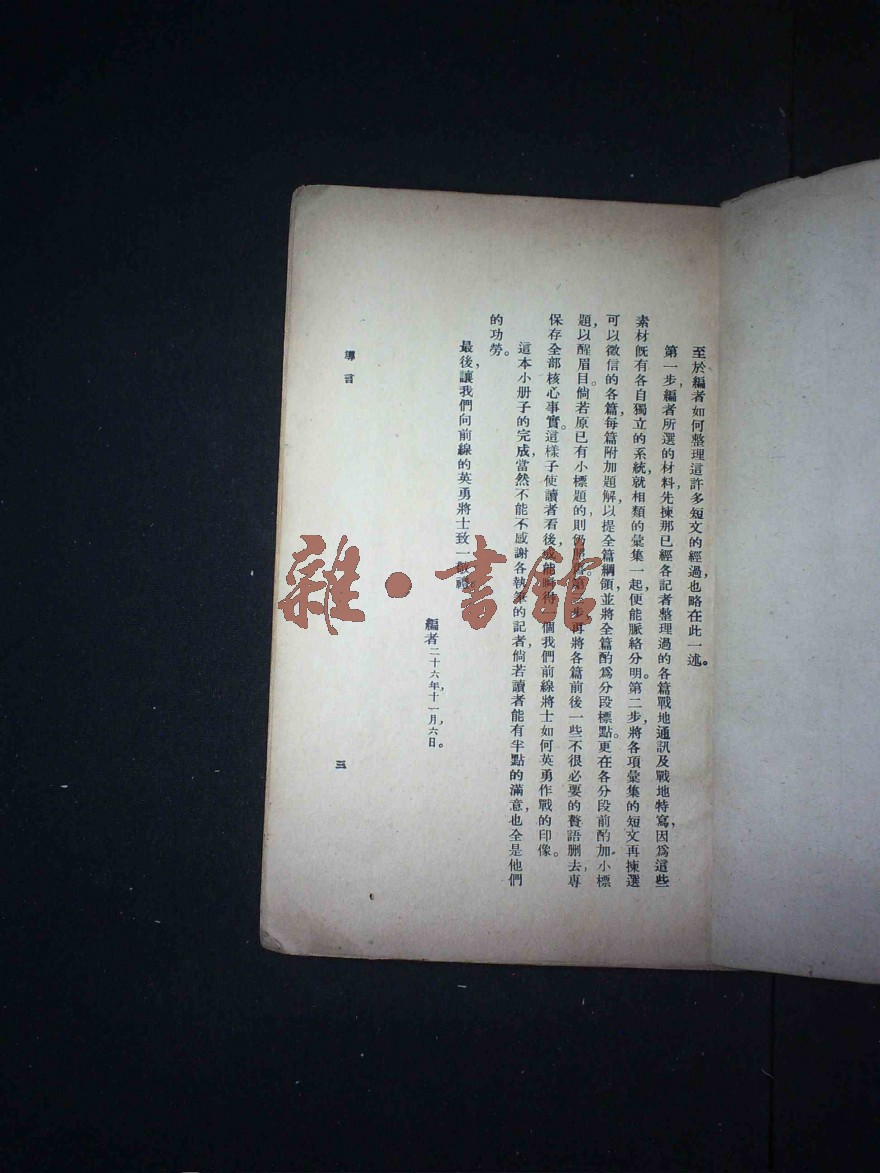 至於編者如何整理這許多短文的經過，也略在此一述。
第一步，編者所選的材料，先揀那已經各記者整理過的各篇戰地通訊及戰地特寫，因爲這些
素材旣有各自獨立的系統，就相類的彙集一起，便能脈絡分明。第二步，將各項彙集的短文再揀選
可以徵信的各篇，每篇附加題解，以提全篇綱領，並將全篇酌爲分段標點。更在各分段前酌加小標
題，以醒眉目。倘若原已有小標題的，則仍照舊。第三步再將各篇前後一些不很必要的贅語刪去，專
保存全部核心事實。這樣子使讀者看後，或能 得一個我們前線將士如何英勇作戰的印像。
這本小册子的完成，當然不能不感謝各執筆的記者，倘若讀者能有半點的滿意，也全是他們
的功勞。
最後，讓我們向前線的英勇將士致一敬禮。
編者 二十六年，十一月，六日。
導言
三
雜·書館